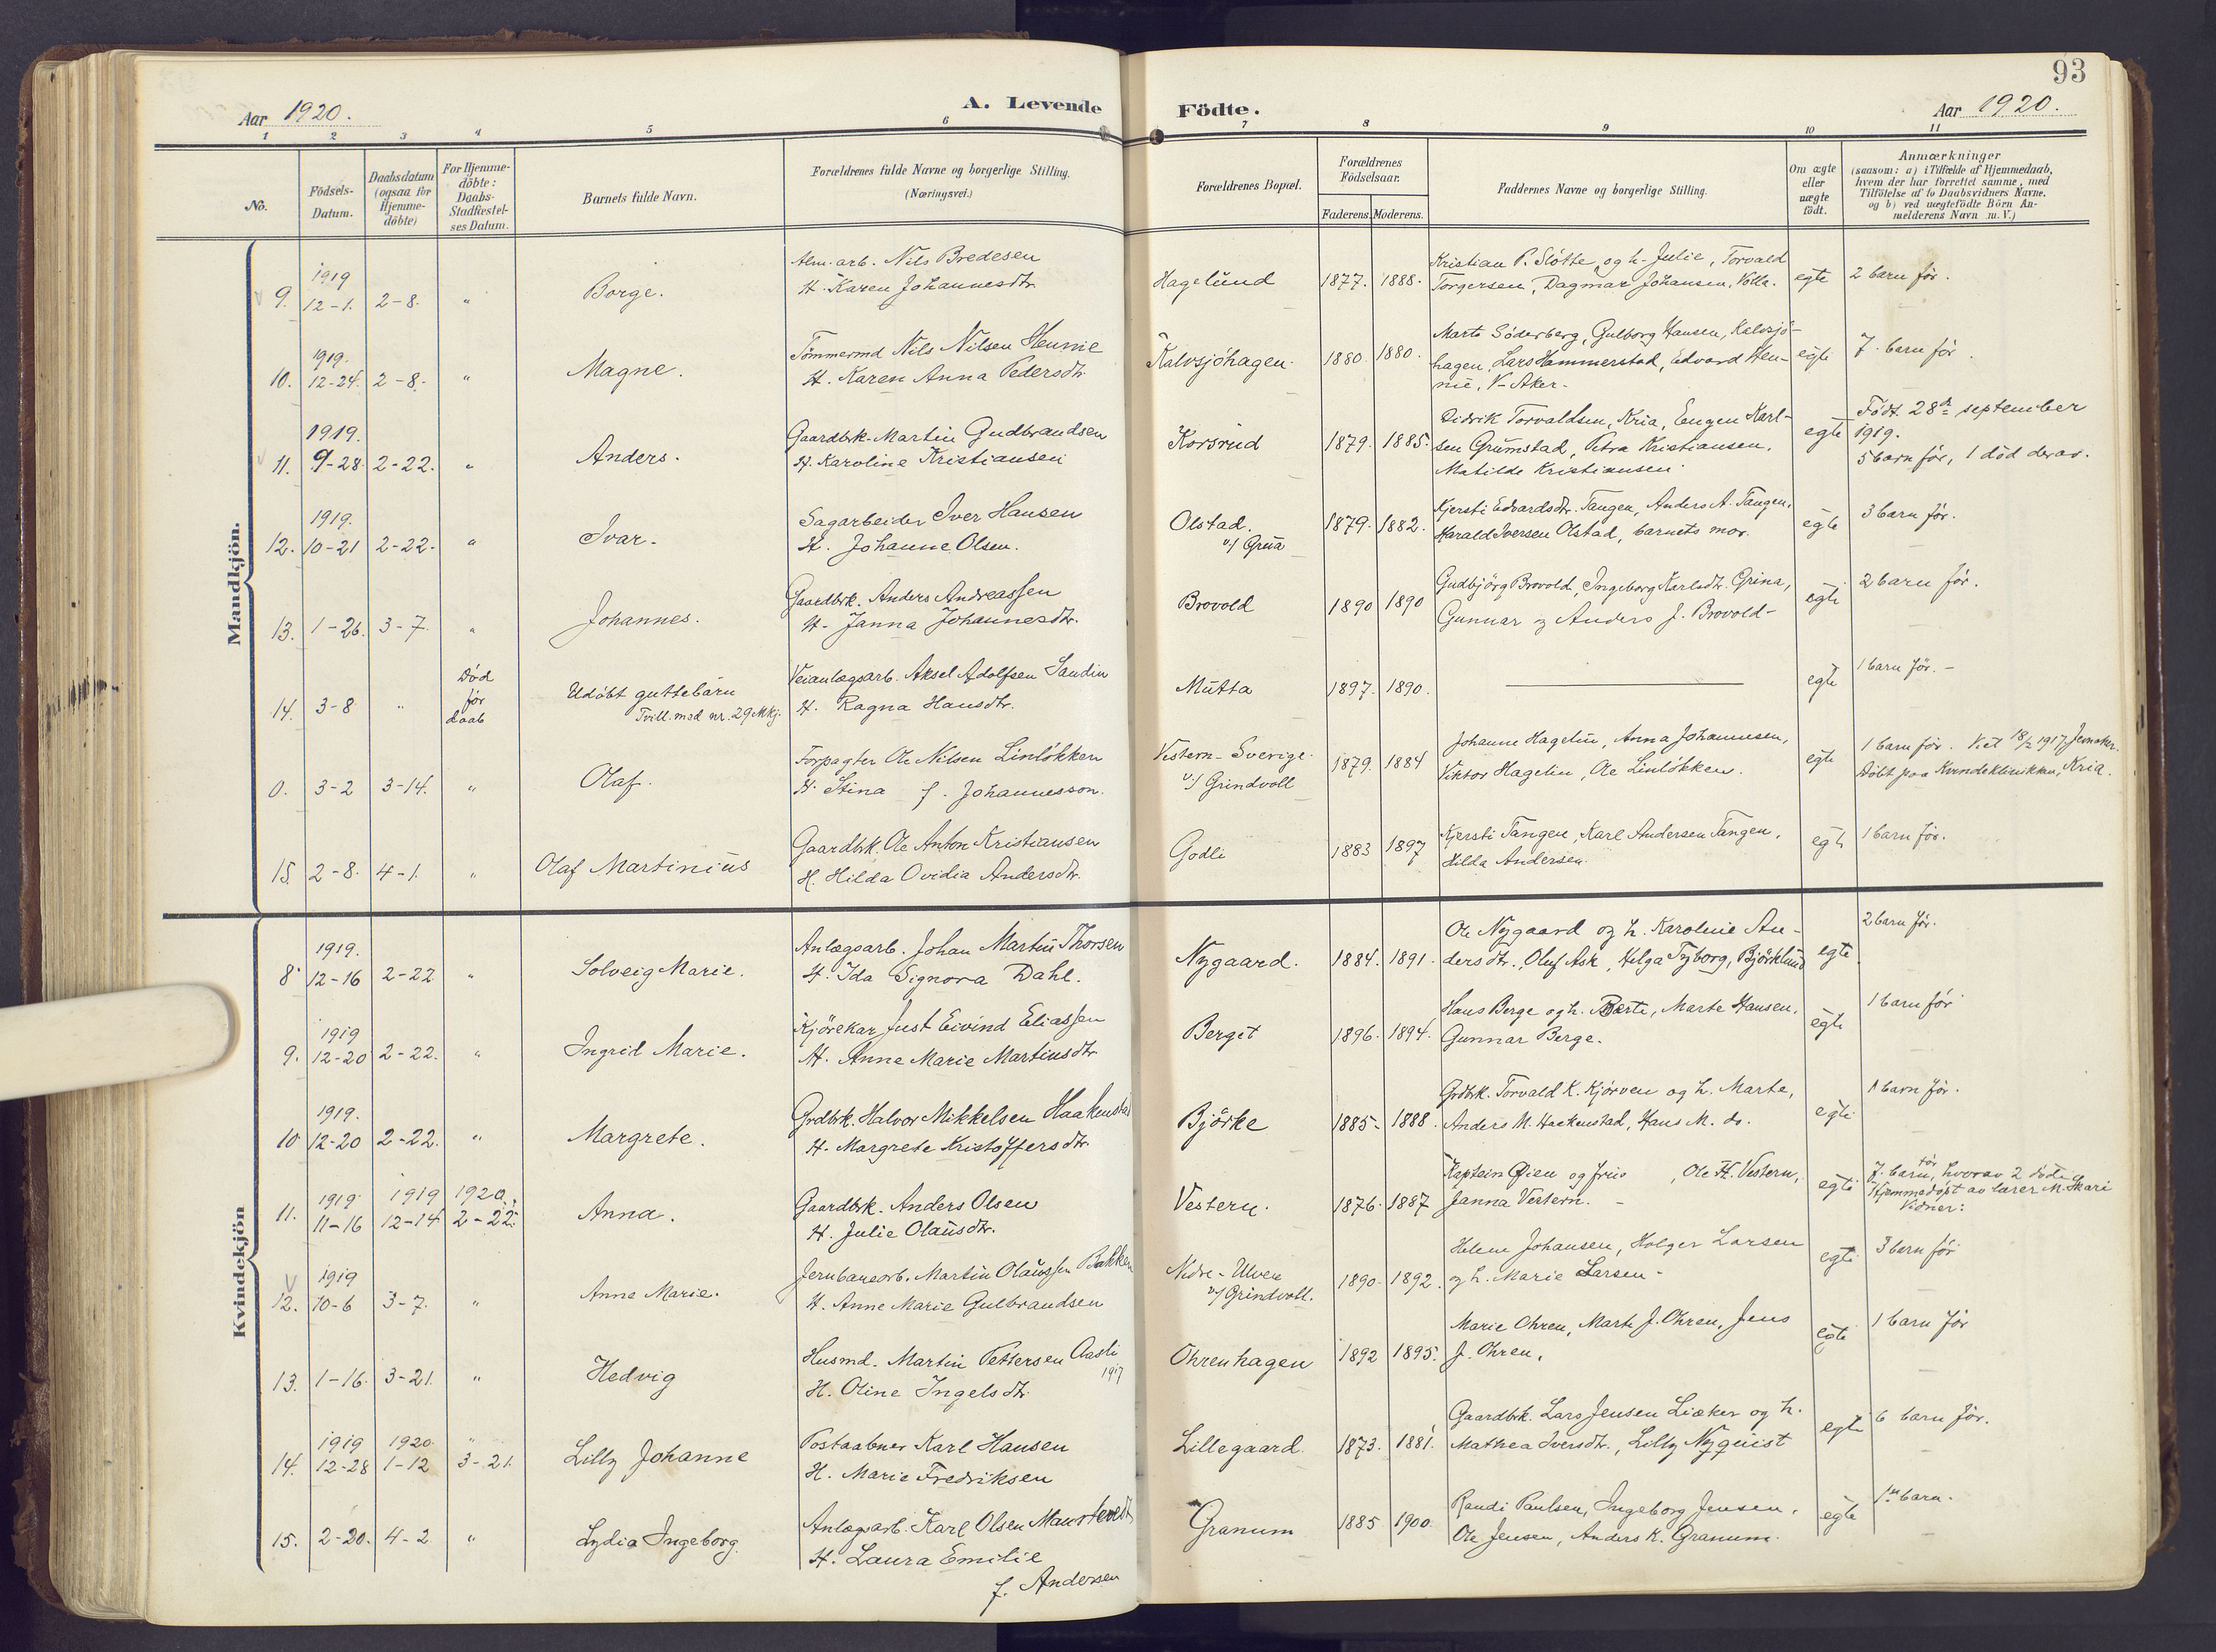 93
Aar 1920.
A. Levende Födte.
Aar 1920.
1 2 3 4 5 6 7 8 9 10 11
No.
Födsels-Datum.
Daabsdatum (ogsaa for Hjemmedöbte)
For Hjemmedöbte: Daabs-Stadfæstelses Datum.
Barnets fulde Navn.
Forældrenes fulde Navne og borgerlige Stilling. (Næringsvei.)
Forældrenes Bopæl.
Forældrenes Födselsaar.
Faderens. Moderens.
Faddernes Navne og borgerlige Stilling.
Om ægte eller uægte födt.
Anmærkninger
(saasom: a) i Tilfælde af Hjemmedaab, hvem der har forrettet samme, med Tilföielse af to Daabsvidners Navne, og b) ved uægtefödte Börn Anmelderens Navn m. V.)
Mandkjön.
9. 1919 12-1. 2-8. " Borge.
Alm. arb. Nils Bredesen
H. Karen Johannesdtr.
Hagelund 1877. 1888.
Kristian P. Slötte, og h. Julie, Torvald
Torgersen, Dagmar Johansen, Volla.
egte 2 barn før.
10. 1919. 12-24. 2-8.- " Magne.
Tömmermd Nils Nilsen Hennie
H. Karen Anna Pedersdtr.
Kalvsjöhagen. 1880. 1880.
Marte Söderberg, Gulborg Hansen, Kalvsjö-
hagen, Lars Hammerstad, Edvard Hen-
nie, V-Aker.
egte 7. barn før.
11. 1919. 9-28. 2-22. " Anders.
Gaardbrk. Martin Gudbrandsen
H. Karoline Kristiansen
Korsrud 1879. 1885.
Didrik Torvaldsen, Kria, Eugen Karl-
sen Grumstad, Petra Kristiansen,
Matilde Kristiansen.
egte Födt 28de september
1919.
5 barn før, 1 död derav.
12. 1919. 10-21 2-22. " Ivar.
Sagarbeider Iver Hansen
H. Johanne Olsen.
Olstad.
v/ Grua
1879. 1882.
Kjersti Edvardsdtr. Tangen, Anders A. Tangen,
Harald Iversen Olstad, barnets mor.
egte 3 barn før.
13. 1-26. 3-7. " Johannes.
Gaardbrk. Anders Andreassen
H. Janna Johannesdtr.
Brovold 1890 1890
Gudbjörg Brovold, Ingeborg Karlsdtr. Grina,
Gunnar og Anders J. Brovold-
egte 2 barn før.
14. 3-8 " Död før daab
Udöbt guttebarn
Tvill. med nr. 29 Mkj.
Veianlægsarb. Aksel Adolfsen Sandin
H. Ragna Hansdtr.
Mutta 1897. 1890.
egte 1 barn før. -
0. 3-2 3-14. " Olaf.
Forpagter Ole Nilsen Linlökken
H. Stina f. Johannesson.
Vestern-Sverige.
v/ Grindvoll
1879. 1884
Johanne Hagelin, Anna Johannesen,
Viktor Hagelin, Ole Linlökken.
egte 1 barn før. Viet 18/2 1917, Jevnaker.
Döbt paa Kvindeklinikken, Kria.
15. 2-8. 4-1. " Olaf Martinius
Gaardbrk. Ole Anton Kristiansen
H. Hilda Ovidia Andersdtr.
Godli 1883 1897
Kjersti Tangen, Karl Andersen Tangen,
Hilda Andersen.
egte 1 barn før.
Kvindekjön
8 1919. 12-16 2-22 " Solveig Marie.
Anlægsarb. Johan Martin Thorsen
H. Ida Signora Dahl.
Nygaard. 1884. 1891.
Ole Nygaard og h. Karoline An-
dersdtr., Oluf Ask, Helga Tyborg, Björklund
egte 2 barn før.
9. 1919 12-20 2-22. " Ingrid Marie.
Kjörekar Just Eivind Eliassen
H. Anne Marie Martinsdtr
Berget 1896. 1894.
Hans Berge og h. Berte, Marte Hansen,
Gunnar Berge.
egte 1 barn før
10 1919. 12-20 2-22. " Margrete.
Grdbrk. Halvor Mikkelsen Haakenstad
H. Margrete Kristoffersdtr.
Björke 1885- 1888.
Grdbrk. Torvald K. Kjörven og h. Marte,
Anders M. Haakenstad, Hans M. do.
egte 1 barn før.
11. 1919 11-16 1919 12-14 1920. 2-22. Anna.
Gaardbrk. Anders Olsen
H. Julie Olausdtr.
Vestern. 1876. 1887
Kaptein Øien og frue , Ole H. Vestern,
Janna Vestern.
egte 7. barn før, hvorav 2 döde
Hjemmedöpt av lærer M. Skari
Vidner:
12. 1919 10-6 3-7. " Anne Marie.
Jernbanearb. Martin Olaussen Bakken
H. Anne Marie Gulbrandsen
Nedre-Ulven
v/ Grindvoll.
1890- 1892.
Helene Johansen, Holger Larsen
og h. Marie Larsen-
egte 3 barn før
13. 1-16. 3-21. " Hedvig
Husmd. Martin Pettersen Aasli
H. Oline Ingelsdtr. 1917
Ohrenhagen 1892 1895.
Marie Ohren, Marte J. Ohren, Jens
J. Ohren,
egte 1 barn før
14. 1919 12-28 1920. 1-12 " 3-21. Lilly Johanne
Postaabner Karl Hansen
H. Marie Fredriksen
Lillegaard. 1873. 1881.
Gaardbrk. Lars Jensen Liæker og h.
Mathea Iversdtr., Lilly Nyquist
egte 6 barn før.
15. 2-20. 4-2 " Lydia Ingeborg.
Anlægsarb. Karl Olsen
H. Laura Emilie
f. Andersen
Granum 1885 1900.
Randi Paulsen, Ingeborg Jensen,
Ole Jensen, Anders K. Granum.
egte 1ste barn.